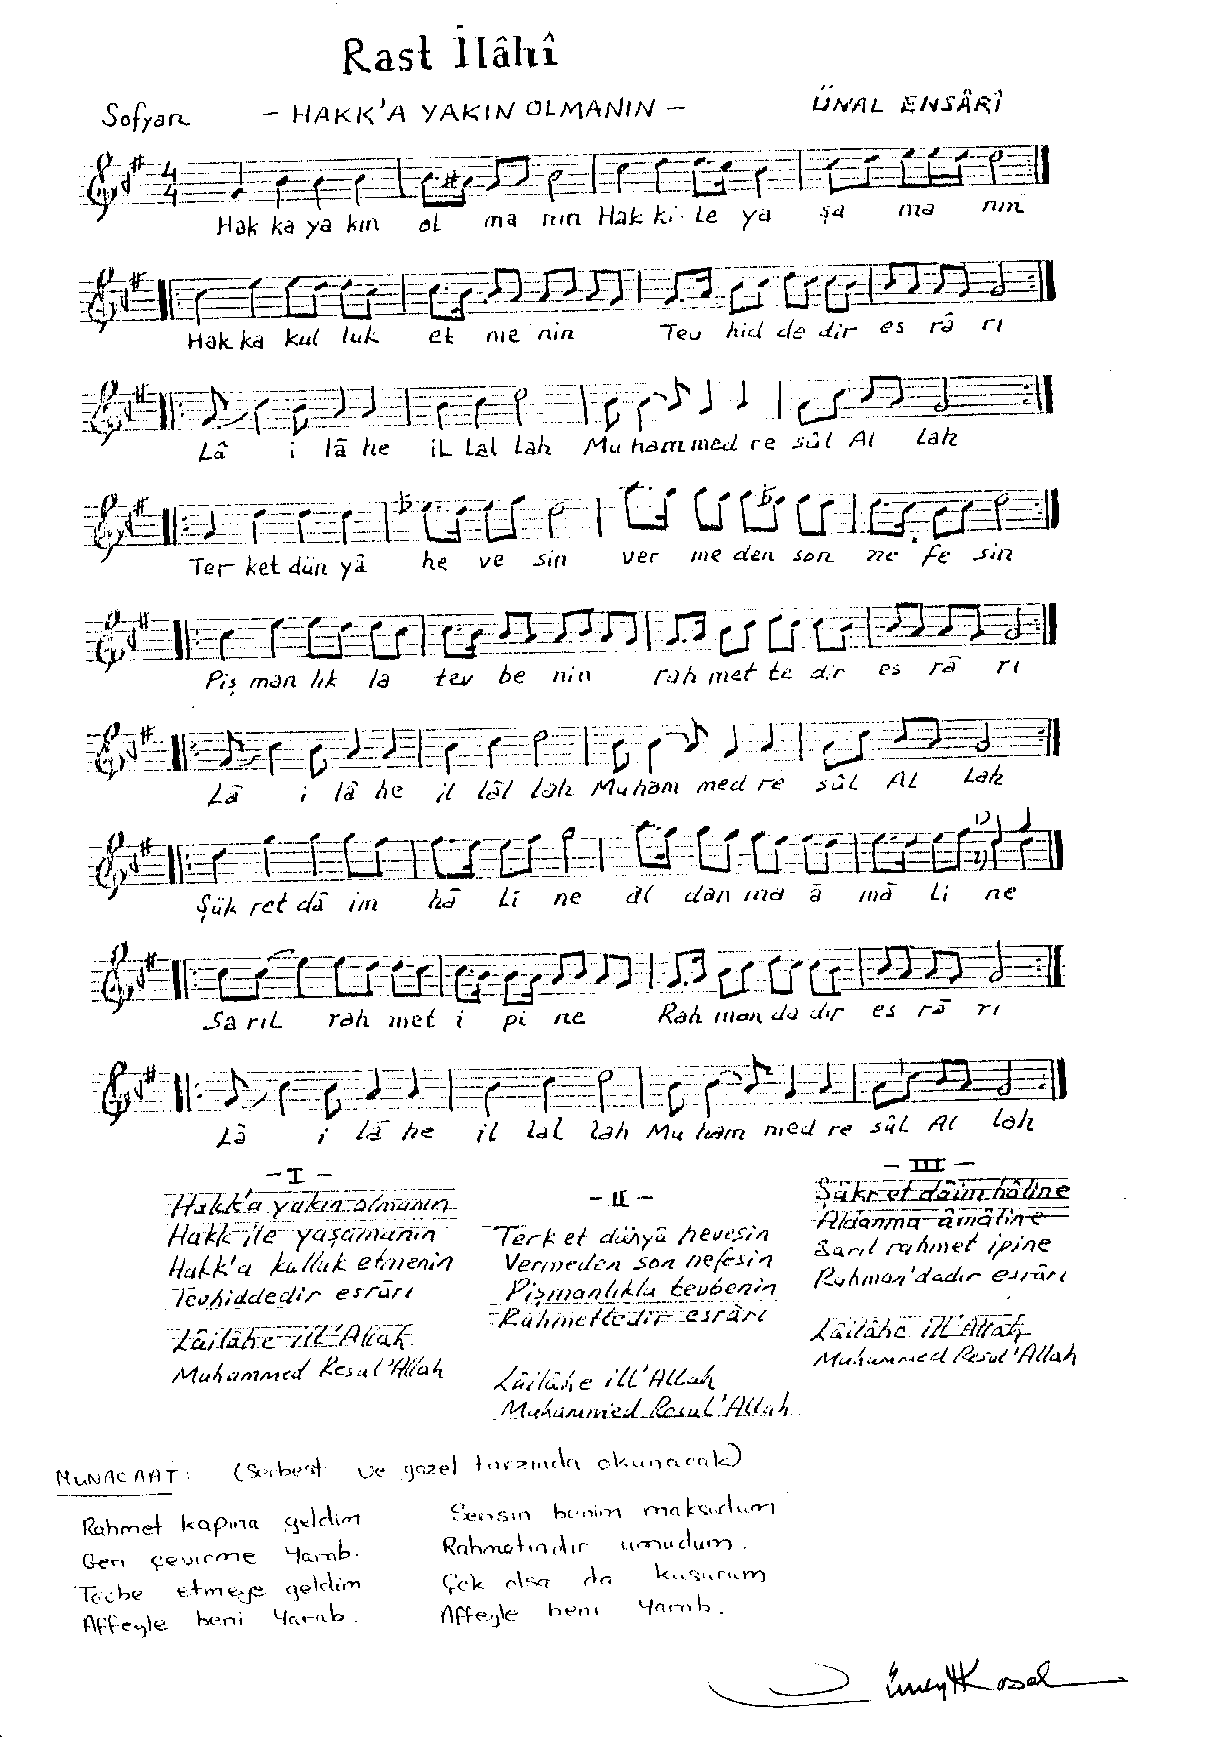 Rast İlâhî
Sofyan - HAKK'A YAKIN OLMANIN - ÜNAL ENSÂRÎ
Hak ka ya kın ol ma nın Hak ki le ya şa ma nın
Hak ka kul luk et me nin Tev hid de dir es râ rı
Lâ i lā he iL Lal Lah Mu ham med re sûl Al Lah
Ter ket dün yâ he ve sin ver me den son ne fe sin
Piş man lık la tev be nin rah met te dir es râ rı
Lâ i lâ he il lâl lah Mu ham med re sûl AL Lah
Şük ret dâ im hâ Li ne al dan ma â mâ Li ne
Sa rıL rah met i pi ne Rah man da dır es râ rı
Lâ i lâ he il lal lah Mu ham med re sûl Al lah
- I -
Hakk'a yakın olmanın
Hakk ile yaşamanın
Hakk'a kulluk etmenin
Tevhiddedir esrârı
Lâilâhe ill'Allah
Muhammed Resul'Allah
- II -
Terk et dünyâ hevesin
Vermeden son nefesin
Pişmanlıkla tevbenin
Rahmettedir esrârı
Lâilâhe ill'ALLah
Muhammed ResuL'ALLah
- III -
Şükr et dâim hâline
Aldanma âmâline
Sarıl rahmet ipine
Rahman'dadır esrârı
Lâilâhe ill'Allah
Muhammed Resul'Allah
MUNACAAT: (Serbest ve gazel tarzında okunacak)
Rahmet kapına geldim
Geri çevirme Yarab.
Tövbe etmeye geldim
Affeyle beni Yarab.
Sensin benim maksudum
Rahmetindir umudum.
Çok olsa da kusurum
Affeyle beni Yarab.